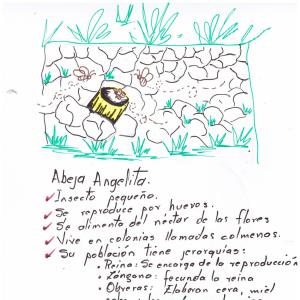 Abeja Angelita.
✓ Insecto pequeño.
✓ Se reproduce por huevos.
✓ Se alimenta del néctar de las flores
✓ Vive en colonias llamadas colmenas.
✓ Su población tiene jerarquías:
• Reina: Se encarga de la reproducción
• Zángano: fecunda la reina
• Obreras: Elaboran cera, miel